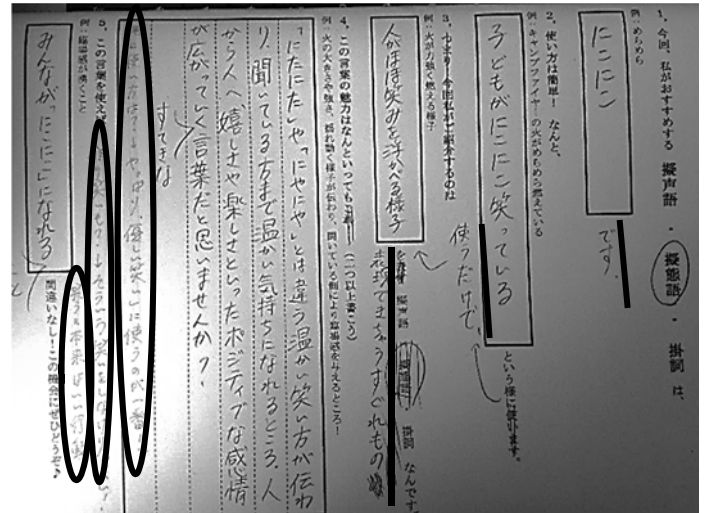 1、今回、私がおすすめする 擬声語 ・ 擬態語 ・ 掛詞 は、
例：めらめら
にこにこ
です。
2、使い方は簡単！ なんと、
例：キャンプファイヤーの火がめらめら燃えている
子どもがにこにこ笑っている
という様に使います。
使うだけで、
3、つまり！今回私がご紹介するのは
例：火が力強く燃える様子
人がほぼ笑みを浮かべる様子
を表す 擬声語 擬態語 掛詞 なんです。
表現できちゃうすぐれもの
4、この言葉の魅力はなんといってもこれ！（二つ以上書こう）
例：火の大きさや強さ、揺れ動く様子が伝わり、聞いている側により臨場感を与えるところ！
「にたにた」や「にやにや」とは違う温かい笑い方が伝わ
り、聞いている方まで温かい気持ちになれるところ。人
から人へ、嬉しさや楽しさといったポジティブな感情
が広がっていく言葉だと思いませんか？
すてきな
やっぱり、優しい笑いに使うのが一番
5、この言葉を使えば
例：臨場感が湧くこと
みんなが「にこにこ」になれる
こと
間違いなし！この機会にぜひどうぞ♪